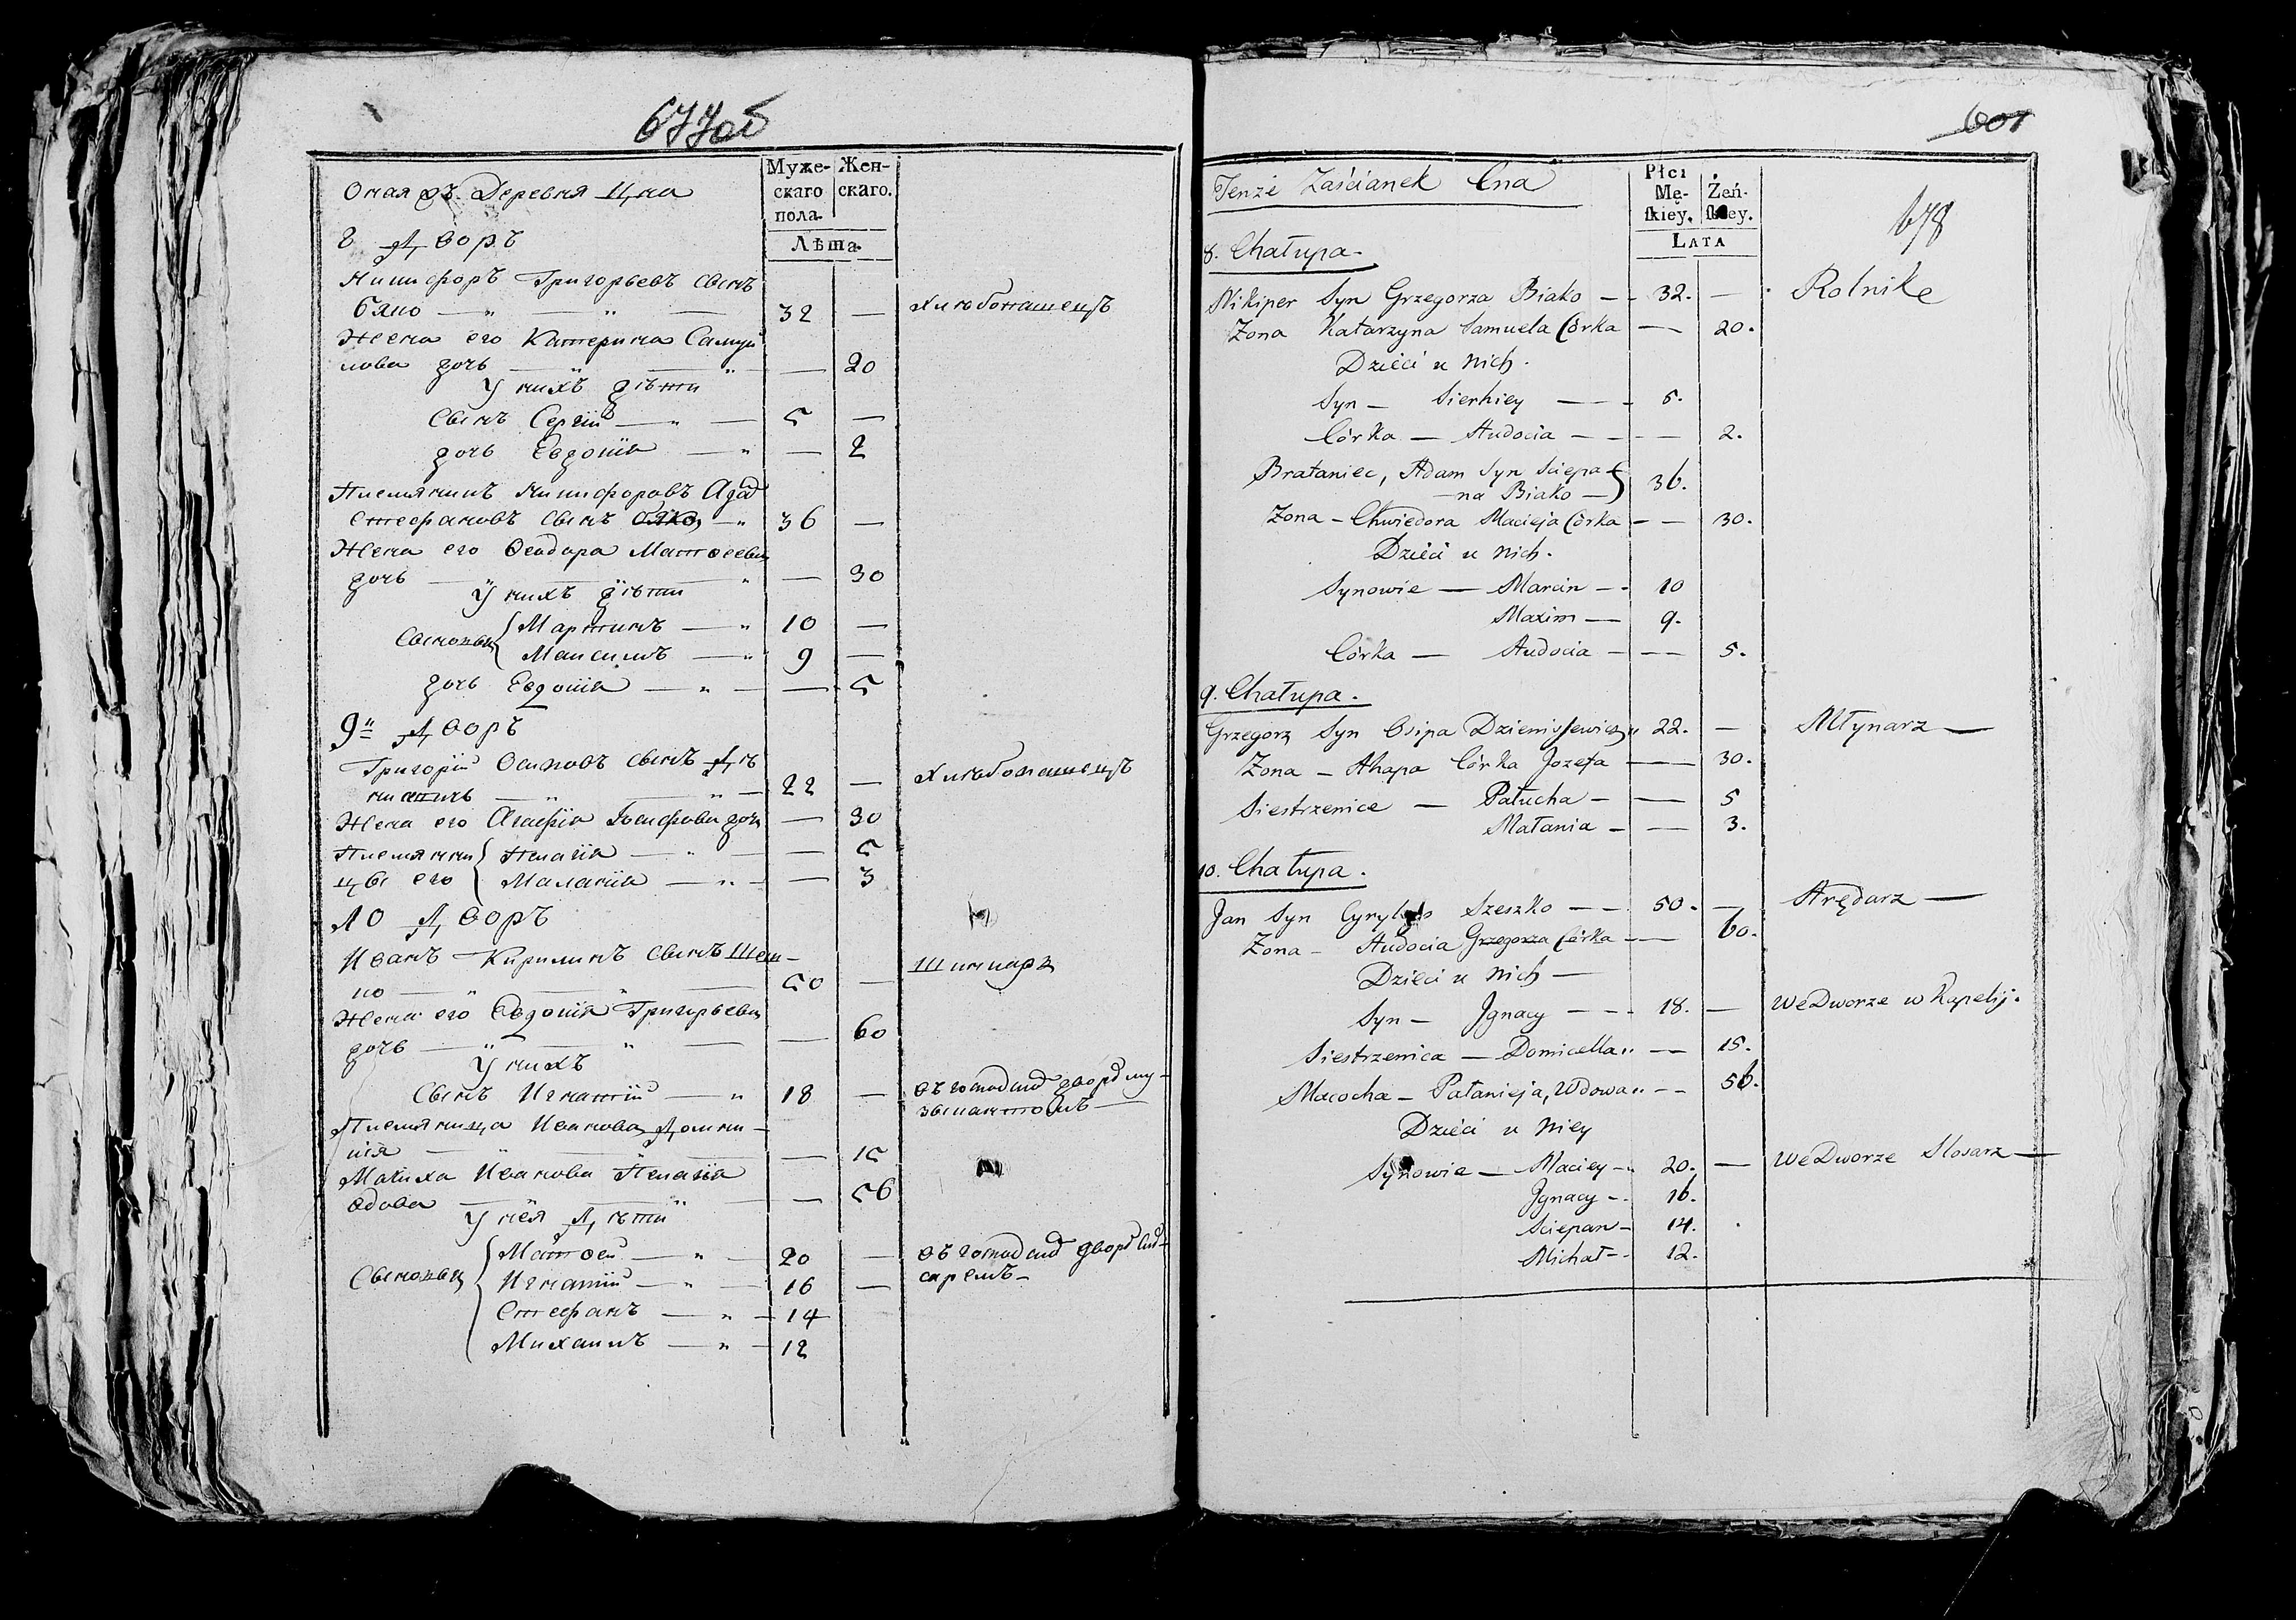 677об
Муже- Жен-
скаго скаго.
пола.
Лѣта
Оная жъ Деревня Цна
8 Дворъ
Никифоръ Григорьевъ сынъ
бяко — " — " — 32 — хлѣбопашецъ
Жена его Катерина Самуй
лова дочь — " — " — 20
У нихъ дѣти
Сынъ Сергій — " — 5 —
дочь Евдокія — " — 2
Племянникъ Никифоровъ Адам
Стефановъ сынъ бяко — " 36 —
Жена его Феодора Матвеева
дочь — " — " — 30
У нихъ дѣти
Сыновья { Мартинъ — " 10 —
Максимъ — " 9 —
дочь Евдокія — " — — 5
9й Дворъ
Григорій Осиповъ сынъ Де
нисевичъ — " — " — 22 — хлѣбопашецъ
Жена его Агафія Іосифова дочь — 30
Племянни { Пелагія — " — — 5
цы его Маланія — " — — 3
10 Дворъ
Иванъ Кирилинъ сынъ Шеш-
ко — " — " — 50 — Шинкарь
Жена его Евдокія Григорьева
дочь — " — " — — 60
У нихъ
Сынъ Игнатій — " 18 — въ господскомъ дворѣ му-
зыкантомъ —
Племянница Иванова Доми-
целя — " — " — 15
Мачиха Иванова Пелагія
вдова — " — " — 56
У нея Дѣти
Сыновья { Матвей — " — 20 — въ господскомъ дворѣ слѣ-
саремъ —
Игнатій — " — 16 —
Стефанъ — " — 14
Михаилъ — " — 12
601
678
Płci
Mę- Żeń-
skiey. skiey.
LATA
Tenże Zaścianek Cna
8. Chałupa.
Nikiper Syn Grzegorza Biako — 32. — Rolnik
Zona Katarzyna Samuela Córka — 20.
Dzieci u nich.
Syn — Sierhiey — 5.
Córka — Audocia — — 2.
Brataniec, Adam Syn Sciepa-
na Biako — } 36.
Zona — Chwiedora Macieja Córka — 30.
Dzieci u nich.
Synowie — Marcin — 10
Maxim — 9.
Córka — Audocia — — 5.
9. Chałupa.
Grzegorz Syn Osipa Dzienissewicz 22. — Młynarz —
Zona — Ahapa Córka Jozefa — 30.
Siestrzenice — Pałucha — — 5
Małania — — 3.
10. Chałupa.
Jan Syn Cyryla Szeszko — 50. — Arędarz —
Zona — Audocia Grzegorza Córka — 60.
Dzieci u nich —
Syn — Jgnacy — 18. — We Dworze w Kapelij.
Siestrzenica — Domicella — 15.
Macocha — Pałanieja, Wdowa — 56.
Dzieci u Niey
Synowie — Maciey — 20. — We Dworze Slosarz —
Jgnacy — 16.
Sciepan — 14.
Michał — 12.